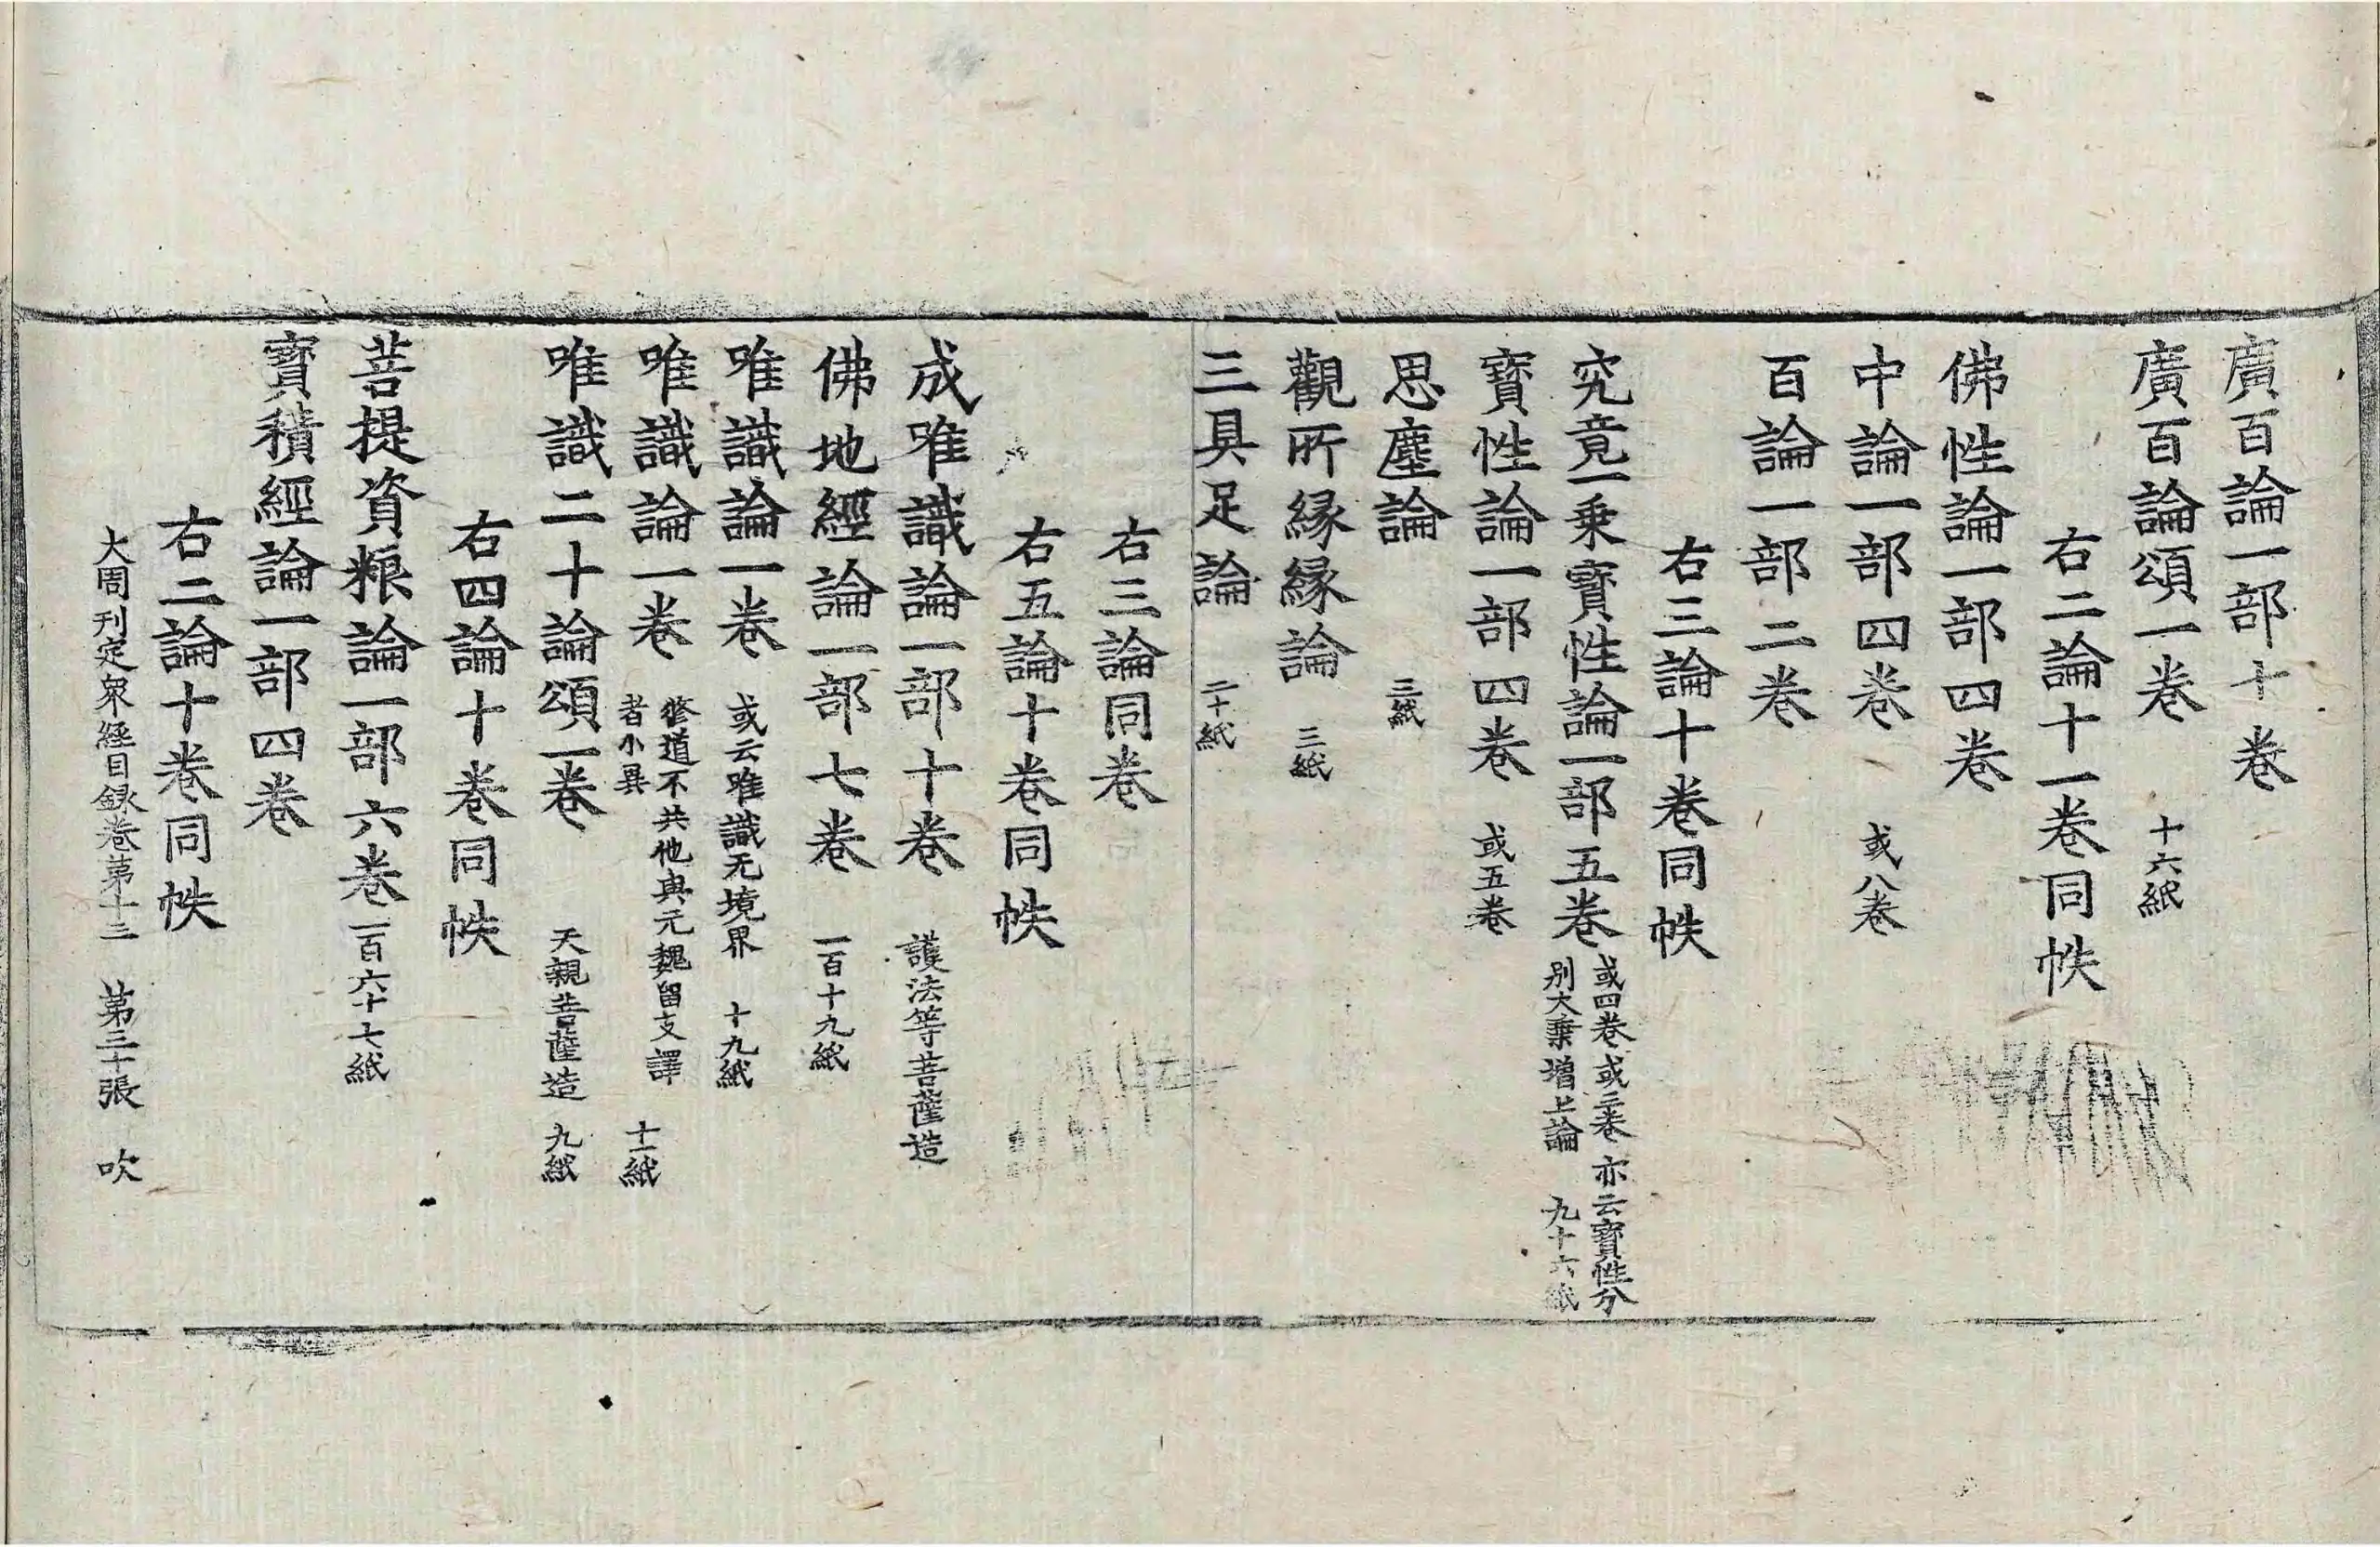 廣百論一部十卷
廣百論頌一卷 十六紙
右二論十一卷同帙
佛性論一部四卷
中論一部四卷 或八卷
百論一部二卷
右三論十卷同帙
究竟一乘寶性論一部五卷 或四卷或三卷亦云寶性分
別大乘增上論 九十六紙
寶性論一部四卷 或五卷
思塵論 三紙
觀所緣緣論 三紙
三具足論 二十紙
右三論同卷
右五論十卷同帙
成唯識論一部十卷 護法等菩薩造
佛地經論一部七卷 一百十九紙
唯識論一卷 或云唯識无境界 十九紙
唯識論一卷 修道不共他與元魏留支譯
者小異 十一紙
唯識二十論頌一卷 天親菩薩造 九紙
右四論十卷同帙
菩提資粮論一部六卷 一百六十七紙
寶積經論一部四卷
右二論十卷同帙
大周刊定衆經目録卷第十三 第三十張 吹